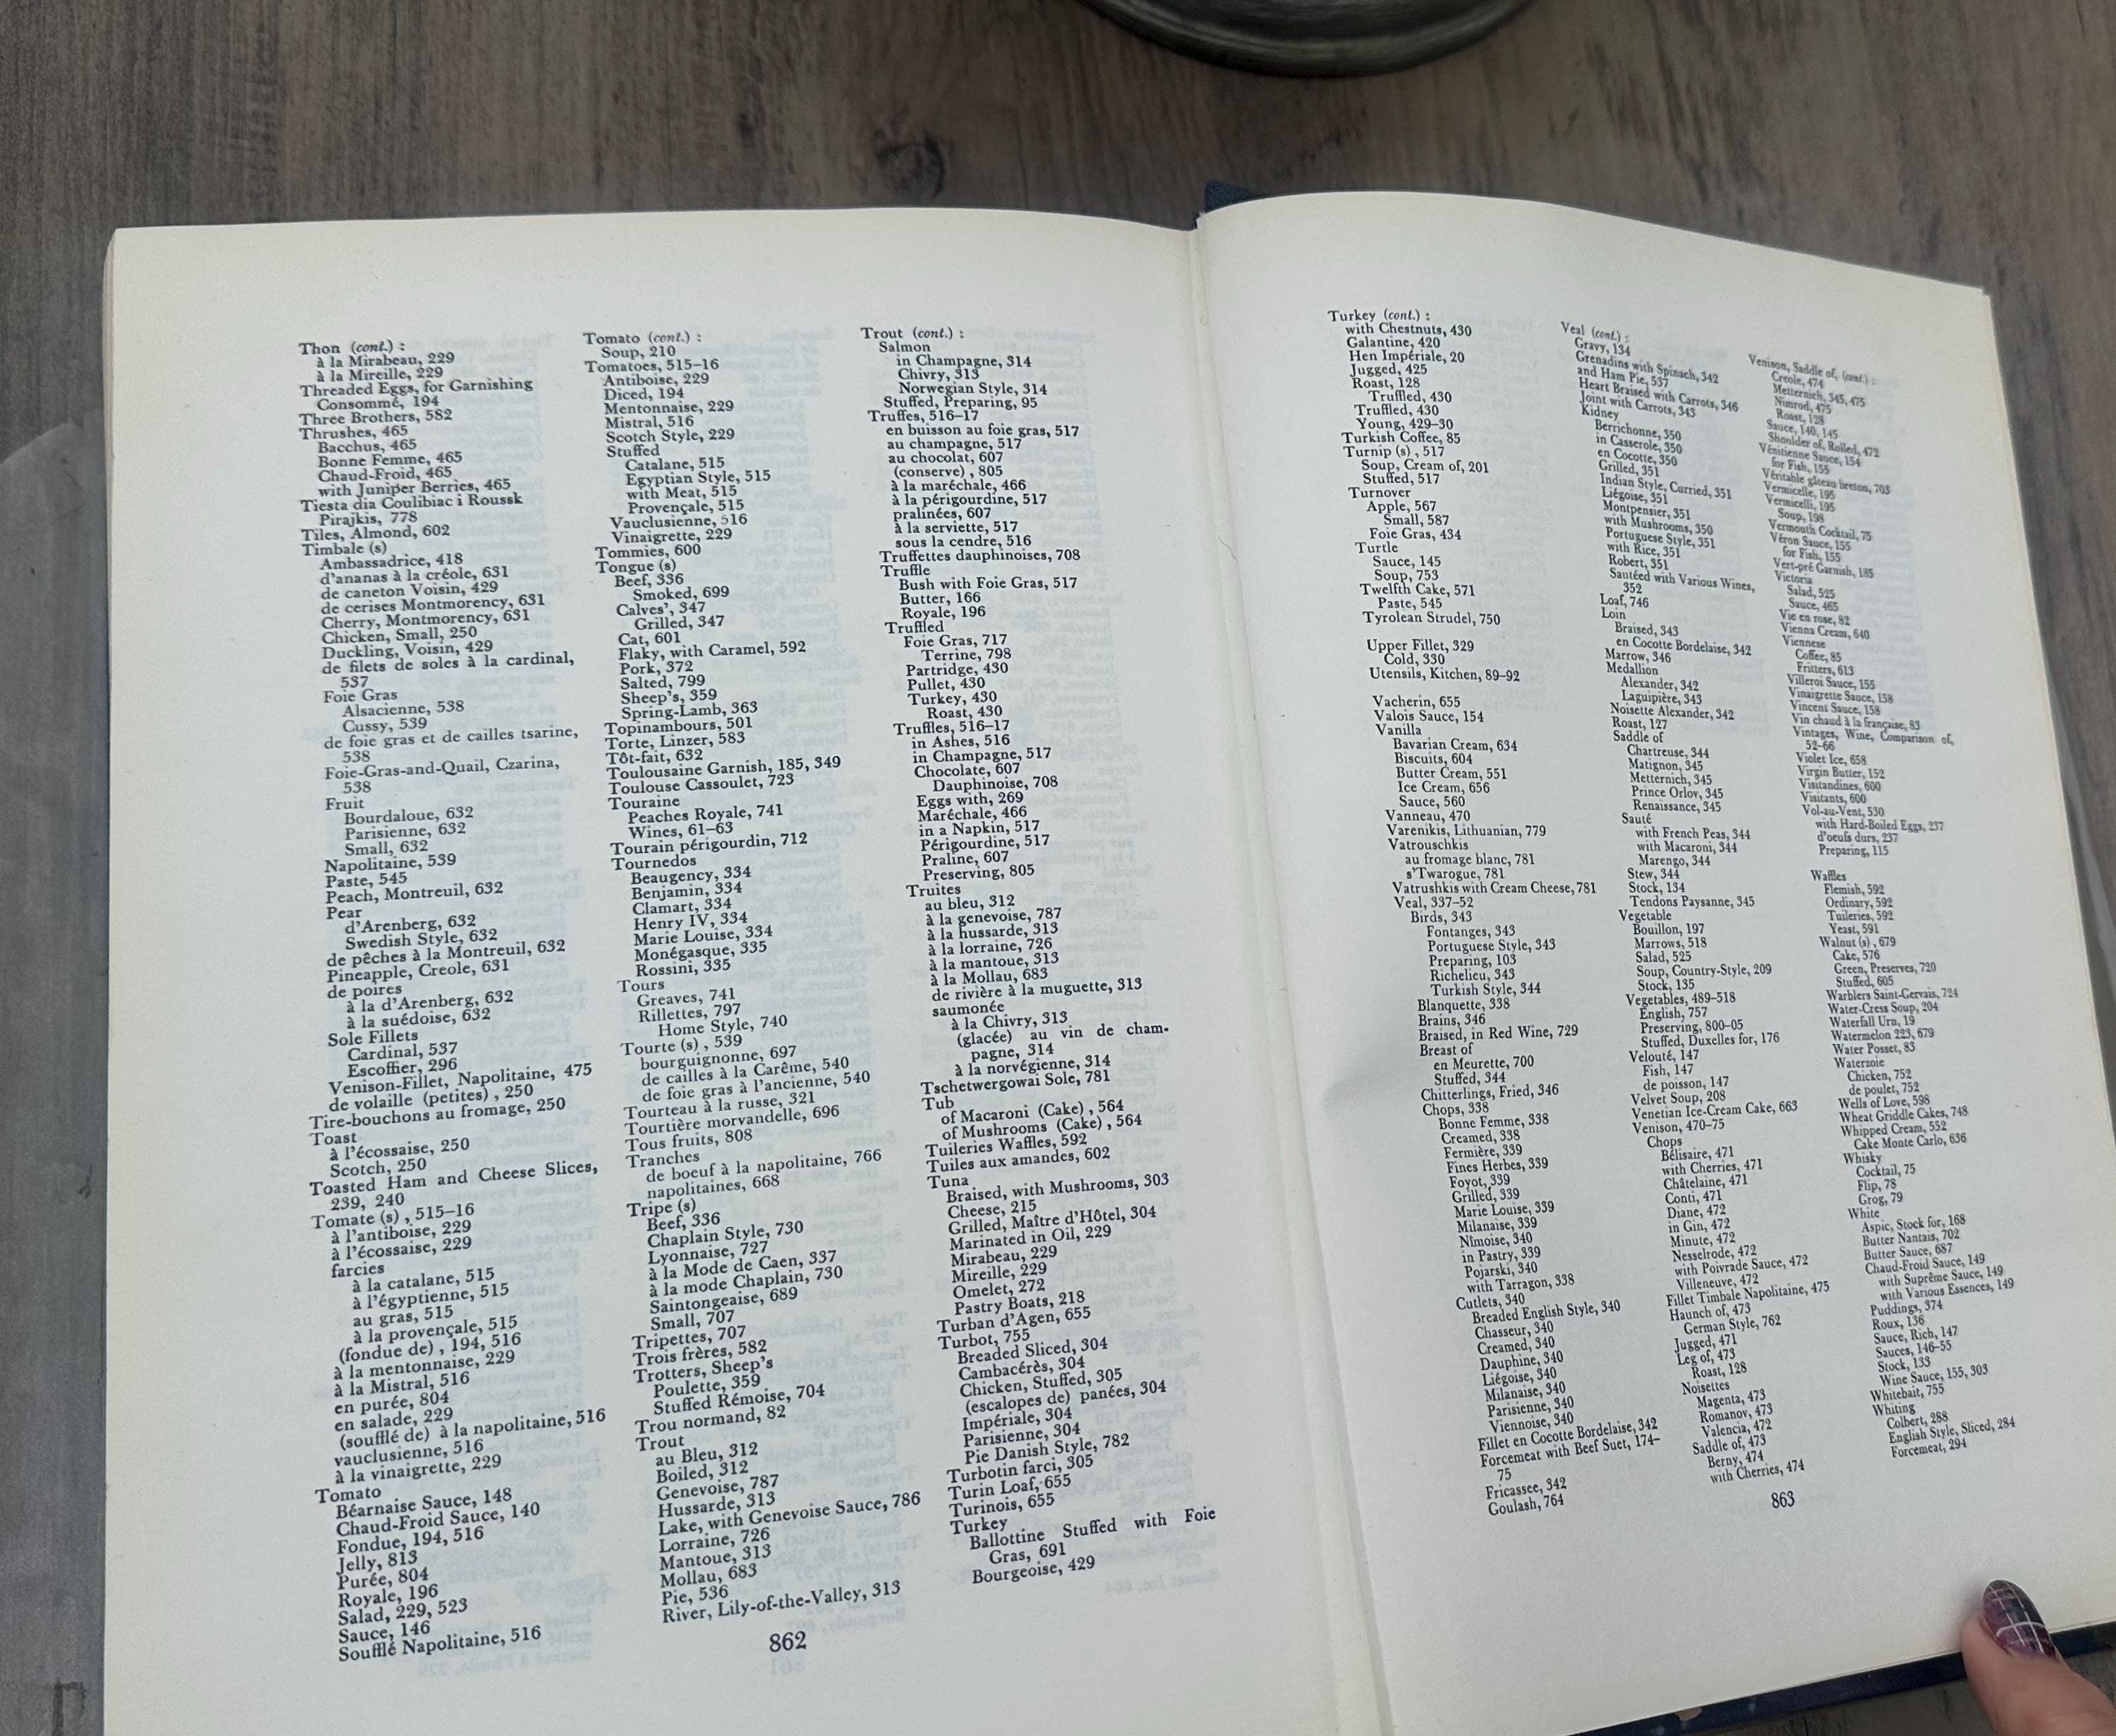 Thon (cont.) :
à la Mirabeau, 229
à la Mireille, 229
Threaded Eggs, for Garnishing
Consommé, 194
Three Brothers, 582
Thrushes, 465
Bacchus, 465
Bonne Femme, 465
Chaud-Froid, 465
with Juniper Berries, 465
Tiesta dia Coulibiac i Roussk
Pirajkis, 778
Tiles, Almond, 602
Timbale (s)
Ambassadrice, 418
d'ananas à la créole, 631
de caneton Voisin, 429
de cerises Montmorency, 631
Cherry, Montmorency, 631
Chicken, Small, 250
Duckling, Voisin, 429
de filets de soles à la cardinal,
537
Foie Gras
Alsacienne, 538
Cussy, 539
de foie gras et de cailles tsarine,
538
Foie-Gras-and-Quail, Czarina,
538
Fruit
Bourdaloue, 632
Parisienne, 632
Small, 632
Napolitaine, 539
Paste, 545
Peach, Montreuil, 632
Pear
d'Arenberg, 632
Swedish Style, 632
de pêches à la Montreuil, 632
Pineapple, Creole, 631
de poires
à la d'Arenberg, 632
à la suédoise, 632
Sole Fillets
Cardinal, 537
Escoffier, 296
Venison-Fillet, Napolitaine, 475
de volaille (petites) , 250
Tire-bouchons au fromage, 250
Toast
à l'écossaise, 250
Scotch, 250
Toasted Ham and Cheese Slices,
239, 240
Tomate (s) , 515–16
à l'antiboise, 229
à l'écossaise, 229
farcies
à la catalane, 515
à l'égyptienne, 515
au gras, 515
à la provençale, 515
(fondue de) , 194, 516
à la mentonnaise, 229
à la Mistral, 516
en purée, 804
en salade, 229
(soufflé de) à la napolitaine, 516
vauclusienne, 516
à la vinaigrette, 229
Tomato
Béarnaise Sauce, 148
Chaud-Froid Sauce, 140
Fondue, 194, 516
Jelly, 813
Purée, 804
Royale, 196
Salad, 229, 523
Sauce, 146
Soufflé Napolitaine, 516
Tomato (cont.) :
Soup, 210
Tomatoes, 515–16
Antiboise, 229
Diced, 194
Mentonnaise, 229
Mistral, 516
Scotch Style, 229
Stuffed
Catalane, 515
Egyptian Style, 515
with Meat, 515
Provençale, 515
Vauclusienne, 516
Vinaigrette, 229
Tommies, 600
Tongue (s)
Beef, 336
Smoked, 699
Calves', 347
Grilled, 347
Cat, 601
Flaky, with Caramel, 592
Pork, 372
Salted, 799
Sheep's, 359
Spring-Lamb, 363
Topinambours, 501
Torte, Linzer, 583
Tôt-fait, 632
Toulousaine Garnish, 185, 349
Toulouse Cassoulet, 723
Touraine
Peaches Royale, 741
Wines, 61–63
Tourain périgourdin, 712
Tournedos
Beaugency, 334
Benjamin, 334
Clamart, 334
Henry IV, 334
Marie Louise, 334
Monégasque, 335
Rossini, 335
Tours
Greaves, 741
Rillettes, 797
Home Style, 740
Tourte (s) , 539
bourguignonne, 697
de cailles à la Carême, 540
de foie gras à l'ancienne, 540
Tourteau à la russe, 321
Tourtière morvandelle, 696
Tous fruits, 808
Tranches
de boeuf à la napolitaine, 766
napolitaines, 668
Tripe (s)
Beef, 336
Chaplain Style, 730
Lyonnaise, 727
à la Mode de Caen, 337
à la mode Chaplain, 730
Saintongeaise, 689
Small, 707
Tripettes, 707
Trois frères, 582
Trotters, Sheep's
Poulette, 359
Stuffed Rémoise, 704
Trou normand, 82
Trout
au Bleu, 312
Boiled, 312
Genevoise, 787
Hussarde, 313
Lake, with Genevoise Sauce, 786
Lorraine, 726
Mantoue, 313
Mollau, 683
Pie, 536
River, Lily-of-the-Valley, 313
Trout (cont.) :
Salmon
in Champagne, 314
Chivry, 313
Norwegian Style, 314
Stuffed, Preparing, 95
Truffes, 516–17
en buisson au foie gras, 517
au champagne, 517
au chocolat, 607
(conserve) , 805
à la maréchale, 466
à la périgourdine, 517
pralinées, 607
à la serviette, 517
sous la cendre, 516
Truffettes dauphinoises, 708
Truffle
Bush with Foie Gras, 517
Butter, 166
Royale, 196
Truffled
Foie Gras, 717
Terrine, 798
Partridge, 430
Pullet, 430
Turkey, 430
Roast, 430
Truffles, 516–17
in Ashes, 516
in Champagne, 517
Chocolate, 607
Dauphinoise, 708
Eggs with, 269
Maréchale, 466
in a Napkin, 517
Périgourdine, 517
Praline, 607
Preserving, 805
Truites
au bleu, 312
à la genevoise, 787
à la hussarde, 313
à la lorraine, 726
à la mantoue, 313
à la Mollau, 683
de rivière à la muguette, 313
saumonée
à la Chivry, 313
(glacée) au vin de cham-
pagne, 314
à la norvégienne, 314
Tschetwergowai Sole, 781
Tub
of Macaroni (Cake) , 564
of Mushrooms (Cake) , 564
Tuileries Waffles, 592
Tuiles aux amandes, 602
Tuna
Braised, with Mushrooms, 303
Cheese, 215
Grilled, Maître d'Hôtel, 304
Marinated in Oil, 229
Mirabeau, 229
Mireille, 229
Omelet, 272
Pastry Boats, 218
Turban d'Agen, 655
Turbot, 755
Breaded Sliced, 304
Cambacérès, 304
Chicken, Stuffed, 305
(escalopes de) panées, 304
Impériale, 304
Parisienne, 304
Pie Danish Style, 782
Turbotin farci, 305
Turin Loaf, 655
Turinois, 655
Turkey
Ballottine Stuffed with Foie
Gras, 691
Bourgeoise, 429
862
Turkey (cont.) :
with Chestnuts, 430
Galantine, 420
Hen Impériale, 20
Jugged, 425
Roast, 128
Truffled, 430
Truffled, 430
Young, 429–30
Turkish Coffee, 85
Turnip (s) , 517
Soup, Cream of, 201
Stuffed, 517
Turnover
Apple, 567
Small, 587
Foie Gras, 434
Turtle
Sauce, 145
Soup, 753
Twelfth Cake, 571
Paste, 545
Tyrolean Strudel, 750
Upper Fillet, 329
Cold, 330
Utensils, Kitchen, 89–92
Vacherin, 655
Valois Sauce, 154
Vanilla
Bavarian Cream, 634
Biscuits, 604
Butter Cream, 551
Ice Cream, 656
Sauce, 560
Vanneau, 470
Varenikis, Lithuanian, 779
Vatrouschkis
au fromage blanc, 781
s'Twarogue, 781
Vatrushkis with Cream Cheese, 781
Veal, 337–52
Birds, 343
Fontanges, 343
Portuguese Style, 343
Preparing, 103
Richelieu, 343
Turkish Style, 344
Blanquette, 338
Brains, 346
Braised, in Red Wine, 729
Breast of
en Meurette, 700
Stuffed, 344
Chitterlings, Fried, 346
Chops, 338
Bonne Femme, 338
Creamed, 338
Fermière, 339
Fines Herbes, 339
Foyot, 339
Grilled, 339
Marie Louise, 339
Milanaise, 339
Nîmoise, 340
in Pastry, 339
Pojarski, 340
with Tarragon, 338
Cutlets, 340
Breaded English Style, 340
Chasseur, 340
Creamed, 340
Dauphine, 340
Liégoise, 340
Milanaise, 340
Parisienne, 340
Viennoise, 340
Fillet en Cocotte Bordelaise, 342
Forcemeat with Beef Suet, 174–
75
Fricassee, 342
Goulash, 764
Veal (cont.) :
Gravy, 134
Grenadins with Spinach, 342
and Ham Pie, 537
Heart Braised with Carrots, 346
Joint with Carrots, 343
Kidney
Berrichonne, 350
in Casserole, 350
en Cocotte, 350
Grilled, 351
Indian Style, Curried, 351
Liégoise, 351
Montpensier, 351
with Mushrooms, 350
Portuguese Style, 351
with Rice, 351
Robert, 351
Sautéed with Various Wines,
352
Loaf, 746
Loin
Braised, 343
en Cocotte Bordelaise, 342
Marrow, 346
Medallion
Alexander, 342
Laguipière, 343
Noisette Alexander, 342
Roast, 127
Saddle of
Chartreuse, 344
Matignon, 345
Metternich, 345
Prince Orlov, 345
Renaissance, 345
Sauté
with French Peas, 344
with Macaroni, 344
Marengo, 344
Stew, 344
Stock, 134
Tendons Paysanne, 345
Vegetable
Bouillon, 197
Marrows, 518
Salad, 525
Soup, Country-Style, 209
Stock, 135
Vegetables, 489–518
English, 757
Preserving, 800–05
Stuffed, Duxelles for, 176
Velouté, 147
Fish, 147
de poisson, 147
Velvet Soup, 208
Venetian Ice-Cream Cake, 663
Venison, 470–75
Chops
Bélisaire, 471
with Cherries, 471
Châtelaine, 471
Conti, 471
Diane, 472
in Gin, 472
Minute, 472
Nesselrode, 472
with Poivrade Sauce, 472
Villeneuve, 472
Fillet Timbale Napolitaine, 475
Haunch of, 473
German Style, 762
Jugged, 471
Leg of, 473
Roast, 128
Noisettes
Magenta, 473
Romanov, 473
Valencia, 472
Saddle of, 473
Berny, 474
with Cherries, 474
Venison, Saddle of, (cont.) :
Creole, 474
Metternich, 345, 475
Nimrod, 475
Roast, 128
Sauce, 140, 145
Shoulder of, Rolled, 472
Vénitienne Sauce, 154
for Fish, 155
Véritable gâteau breton, 703
Vermicelle, 195
Vermicelli, 195
Soup, 198
Vermouth Cocktail, 75
Véron Sauce, 155
for Fish, 155
Vert-pré Garnish, 185
Victoria
Salad, 525
Sauce, 465
Vie en rose, 82
Vienna Cream, 640
Viennese
Coffee, 85
Fritters, 613
Villeroi Sauce, 155
Vinaigrette Sauce, 158
Vincent Sauce, 158
Vin chaud à la française, 83
Vintages, Wine, Comparison of,
52–66
Violet Ice, 658
Virgin Butter, 152
Visitandines, 600
Visitants, 600
Vol-au-Vent, 530
with Hard-Boiled Eggs, 237
d'oeufs durs, 237
Preparing, 115
Waffles
Flemish, 592
Ordinary, 592
Tuileries, 592
Yeast, 591
Walnut (s) , 679
Cake, 576
Green, Preserves, 720
Stuffed, 605
Warblers Saint-Gervais, 724
Water-Cress Soup, 204
Waterfall Urn, 19
Watermelon 223, 679
Water Posset, 83
Waterzoie
Chicken, 752
de poulet, 752
Wells of Love, 598
Wheat Griddle Cakes, 748
Whipped Cream, 552
Cake Monte Carlo, 636
Whisky
Cocktail, 75
Flip, 78
Grog, 79
White
Aspic, Stock for, 168
Butter Nantais, 702
Butter Sauce, 687
Chaud-Froid Sauce, 149
with Suprême Sauce, 149
with Various Essences, 149
Puddings, 374
Roux, 136
Sauce, Rich, 147
Sauces, 146–55
Stock, 133
Wine Sauce, 155, 303
Whitebait, 755
Whiting
Colbert, 288
English Style, Sliced, 284
Forcemeat, 294
863